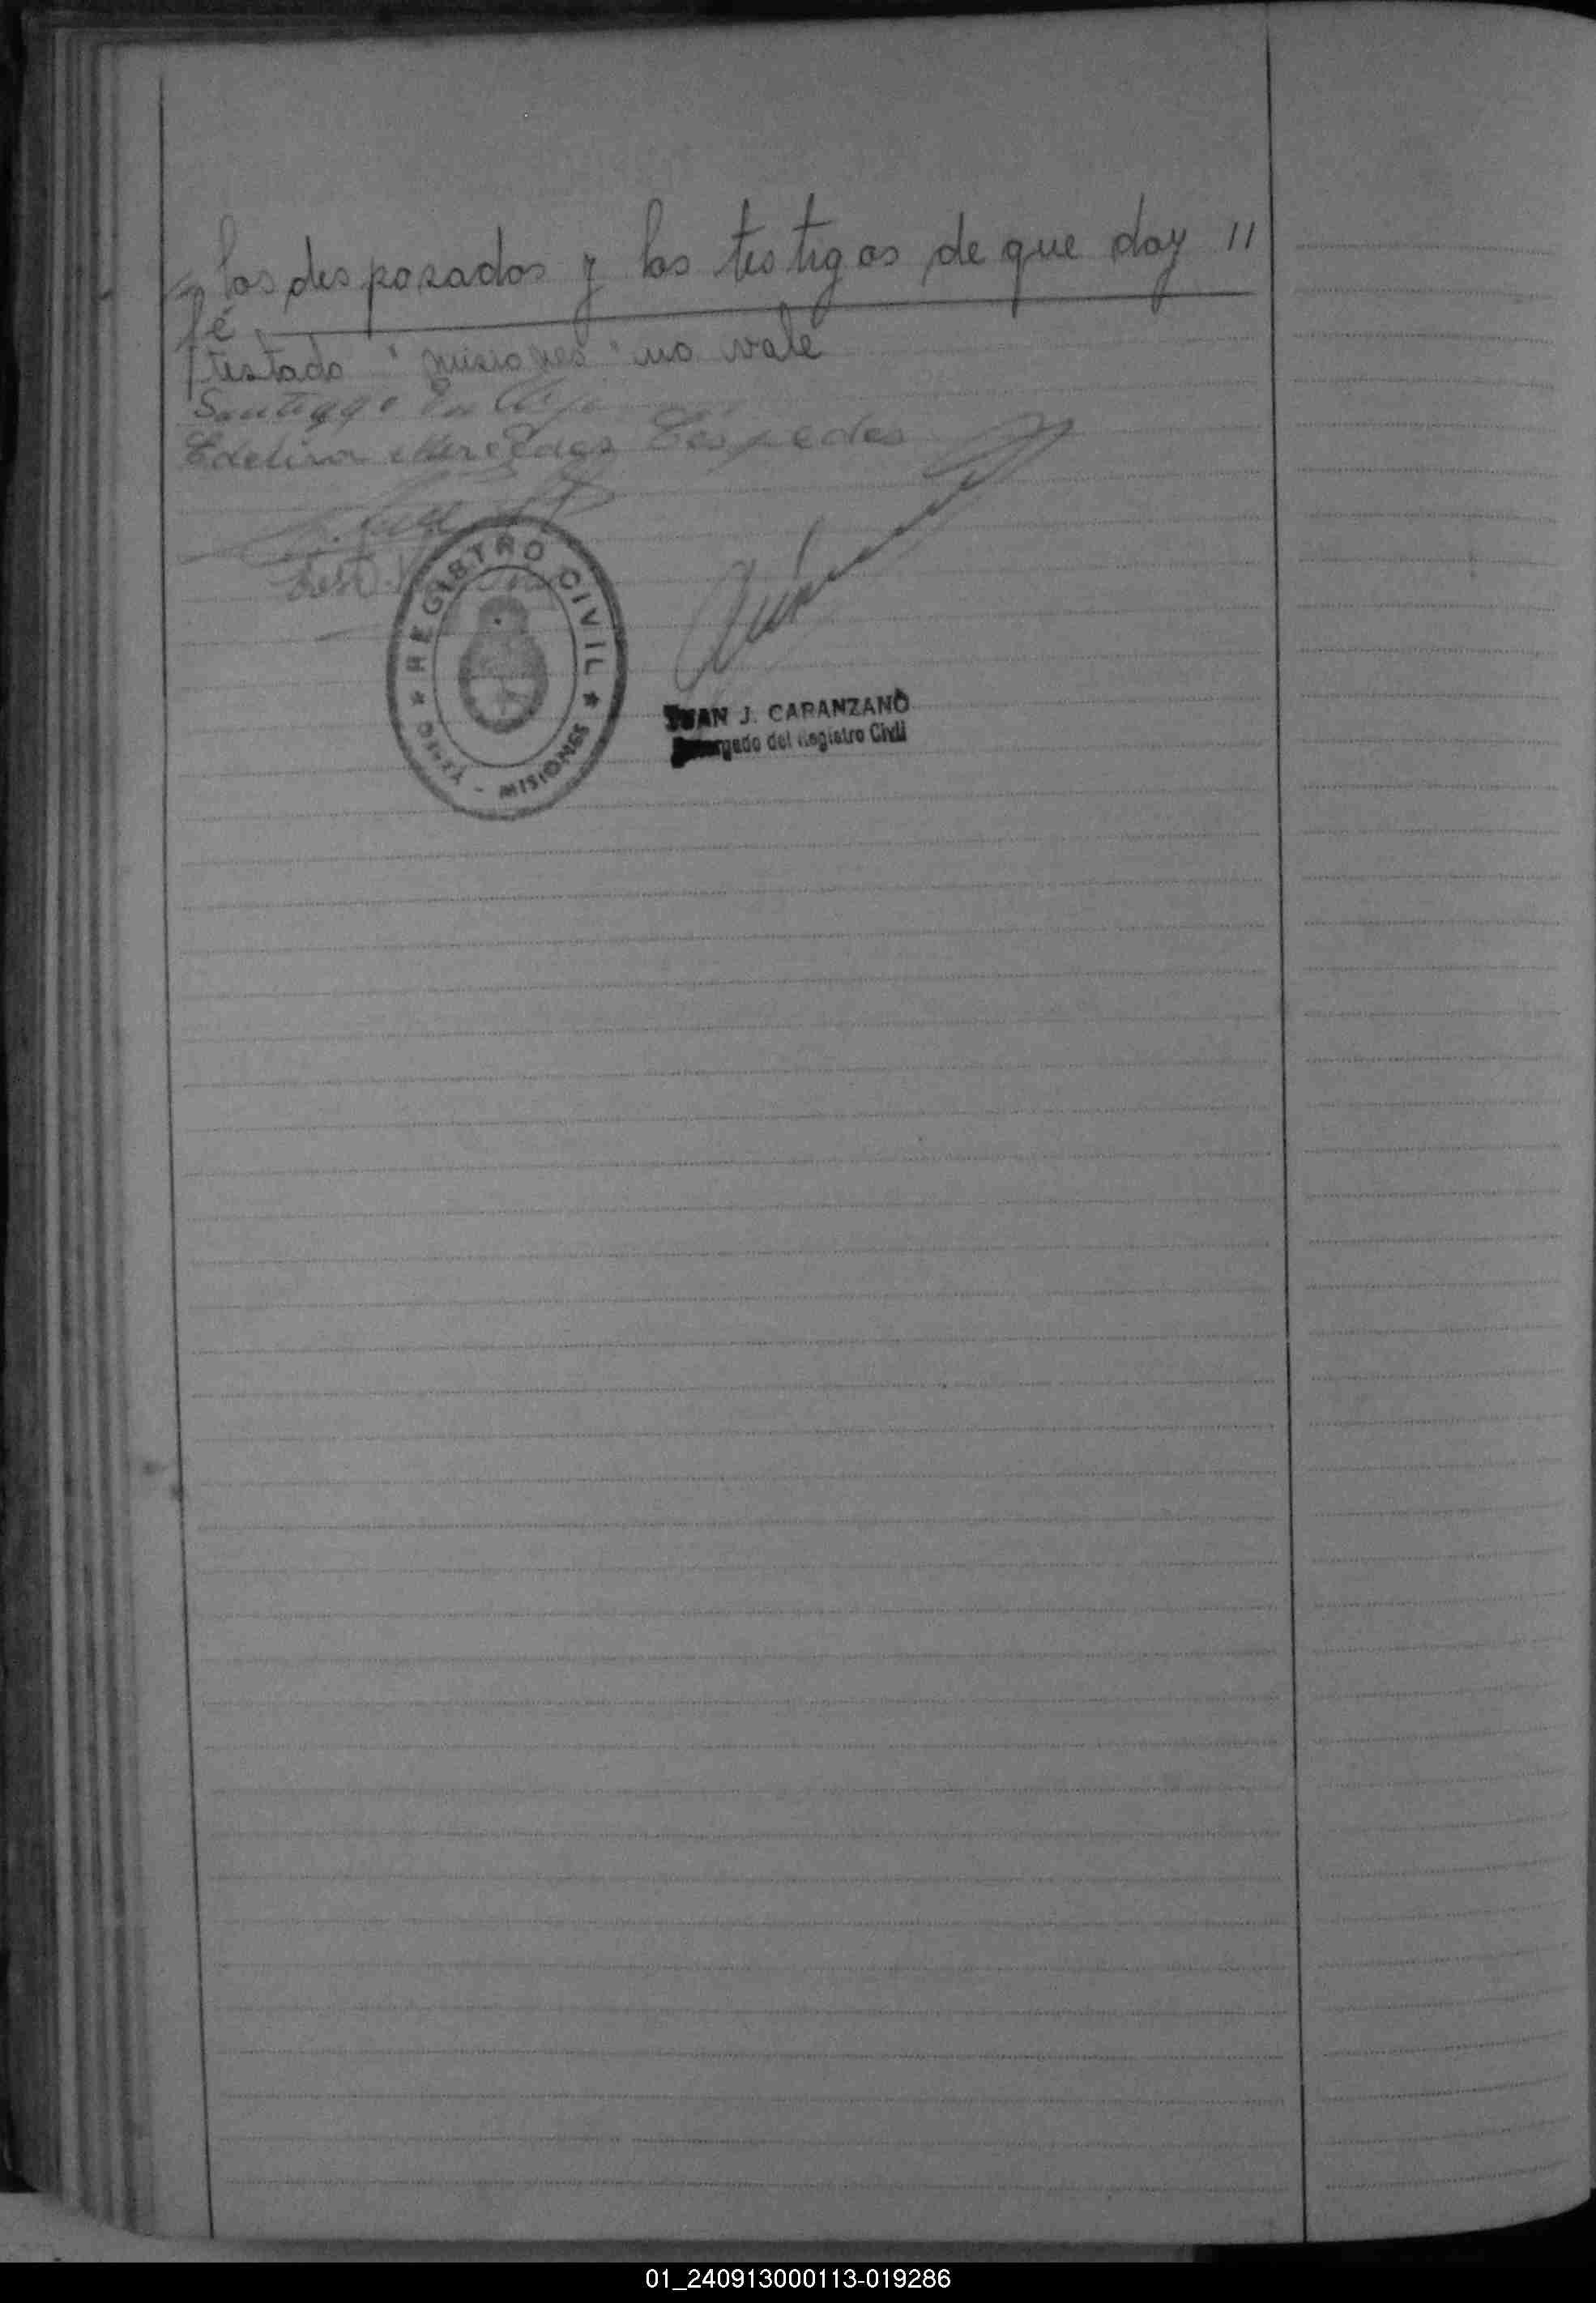 los desposados y los testigos de que doy //
fé.
testado "misiones" no vale
Santiago
Edelira Mercedes Céspedes
REGISTRO CIVIL
MISIONES
JUAN J. CARANZANO
Encargado del Registro Civil
01_240913000113-019286